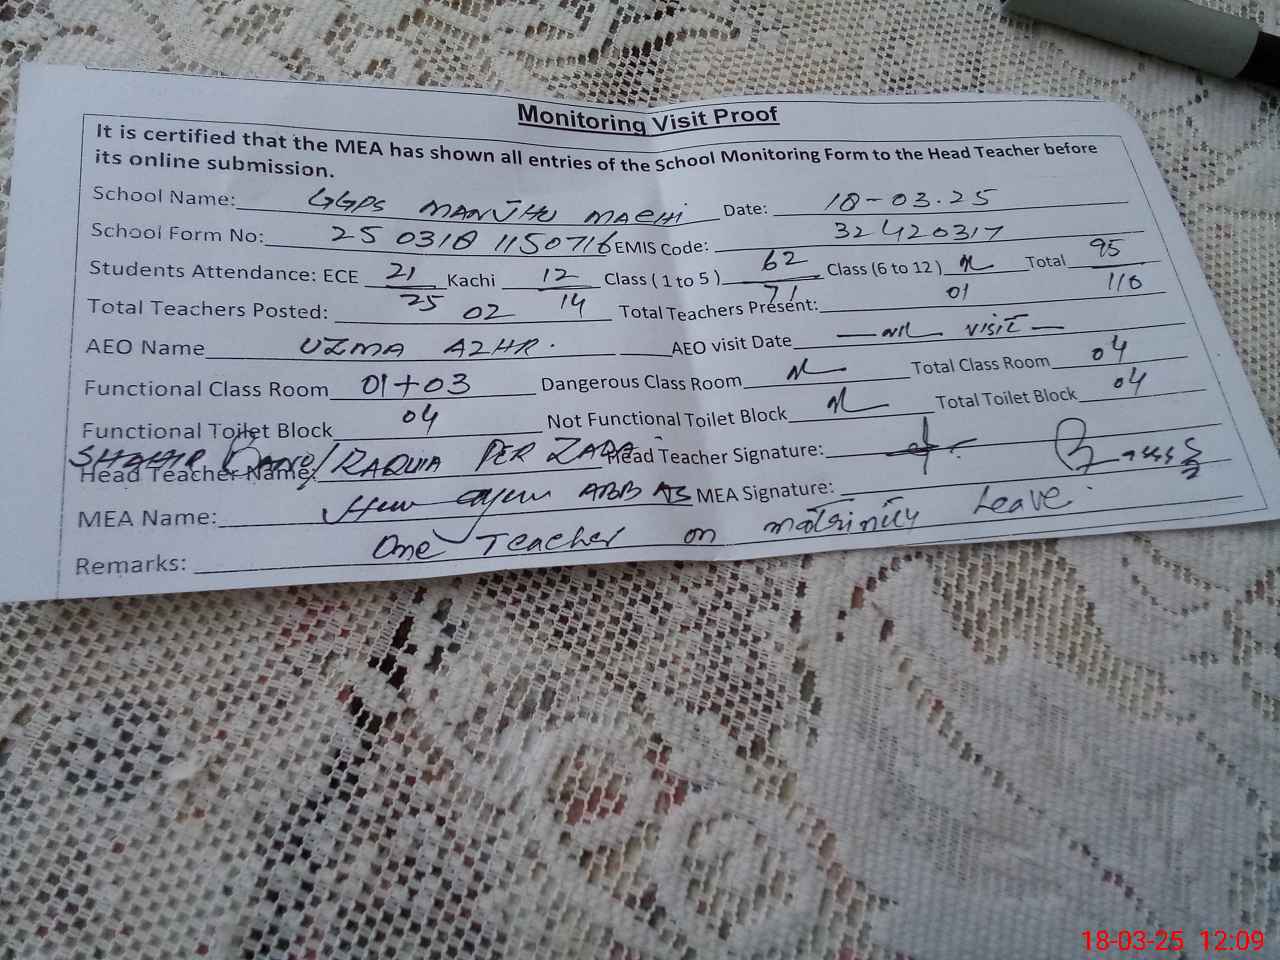 Monitoring Visit Proof
It is certified that the MEA has shown all entries of the School Monitoring Form to the Head Teacher before
its online submission.
School Name: GGPS MANJHU MACHI Date: 18-03.25
School Form No: 25 0318 1150716 EMIS Code: 32420317
Students Attendance: ECE 21/25 Kachi 12/14 Class (1 to 5) 62/71 Class (6 to 12) Total 95/110
Total Teachers Posted: 02 Total Teachers Present: 01
AEO Name UZMA AZHR. AEO visit Date — NIL VISIT —
Functional Class Room 01+03 Dangerous Class Room Total Class Room 04
Functional Toilet Block 04 Not Functional Toilet Block Total Toilet Block 04
Head Teacher Name: / RAQUIA PER ZADA Head Teacher Signature:
MEA Name: ABBAS MEA Signature:
Remarks: One Teacher on matrinity Leave.
18-03-25 12:09